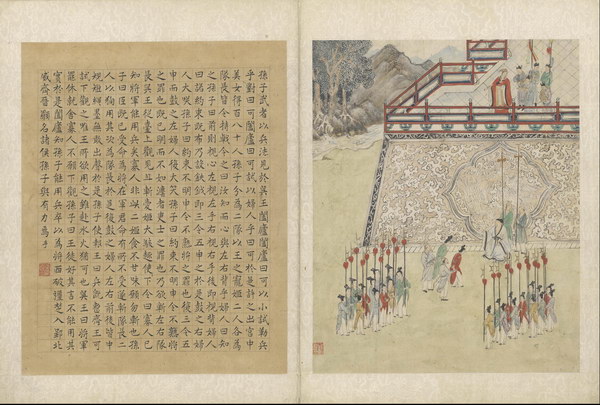 孫子武者以兵法見於吳王闔廬闔廬曰可以小試勒兵
乎對曰可闔廬曰可試以婦人乎曰可於是許之出宮中
美女得百八十人孫子分為二隊以王之寵姬二人各為
隊長皆令持戟令之曰汝知而心與左右背乎婦人曰知
之孫子曰前則視心左視左手右視右手後即視背婦人
曰諾約束既布乃設鈇鉞即三令五申之於是鼓之右婦
人大笑孫子曰約束不明申令不熟將之罪也復三令五
申而鼓之左婦人復大笑孫子曰約束不明申令不熟將
之罪也既已明而不如法者吏士之罪也乃欲斬左右隊
長吳王從臺上觀見且斬愛姬大駭趣使下令曰寡人已
知將軍能用兵矣寡人非此二姬食不甘味願勿斬也孫
子曰臣既已受命為將在軍君命有所不受遂斬隊長二
人以徇用其次為隊長於是復鼓之婦人左右前後皆中
規矩繩墨無敢出聲於是孫子使報王曰兵既整齊王可
試下觀之唯王所欲用之雖赴水火猶可也吳王曰將軍
罷休就舍寡人不願下觀孫子曰王徒好其言不能用其
實於是闔廬知孫子能用兵卒以為將西破彊楚入郢北
威齊晉顯名諸侯孫子與有力焉